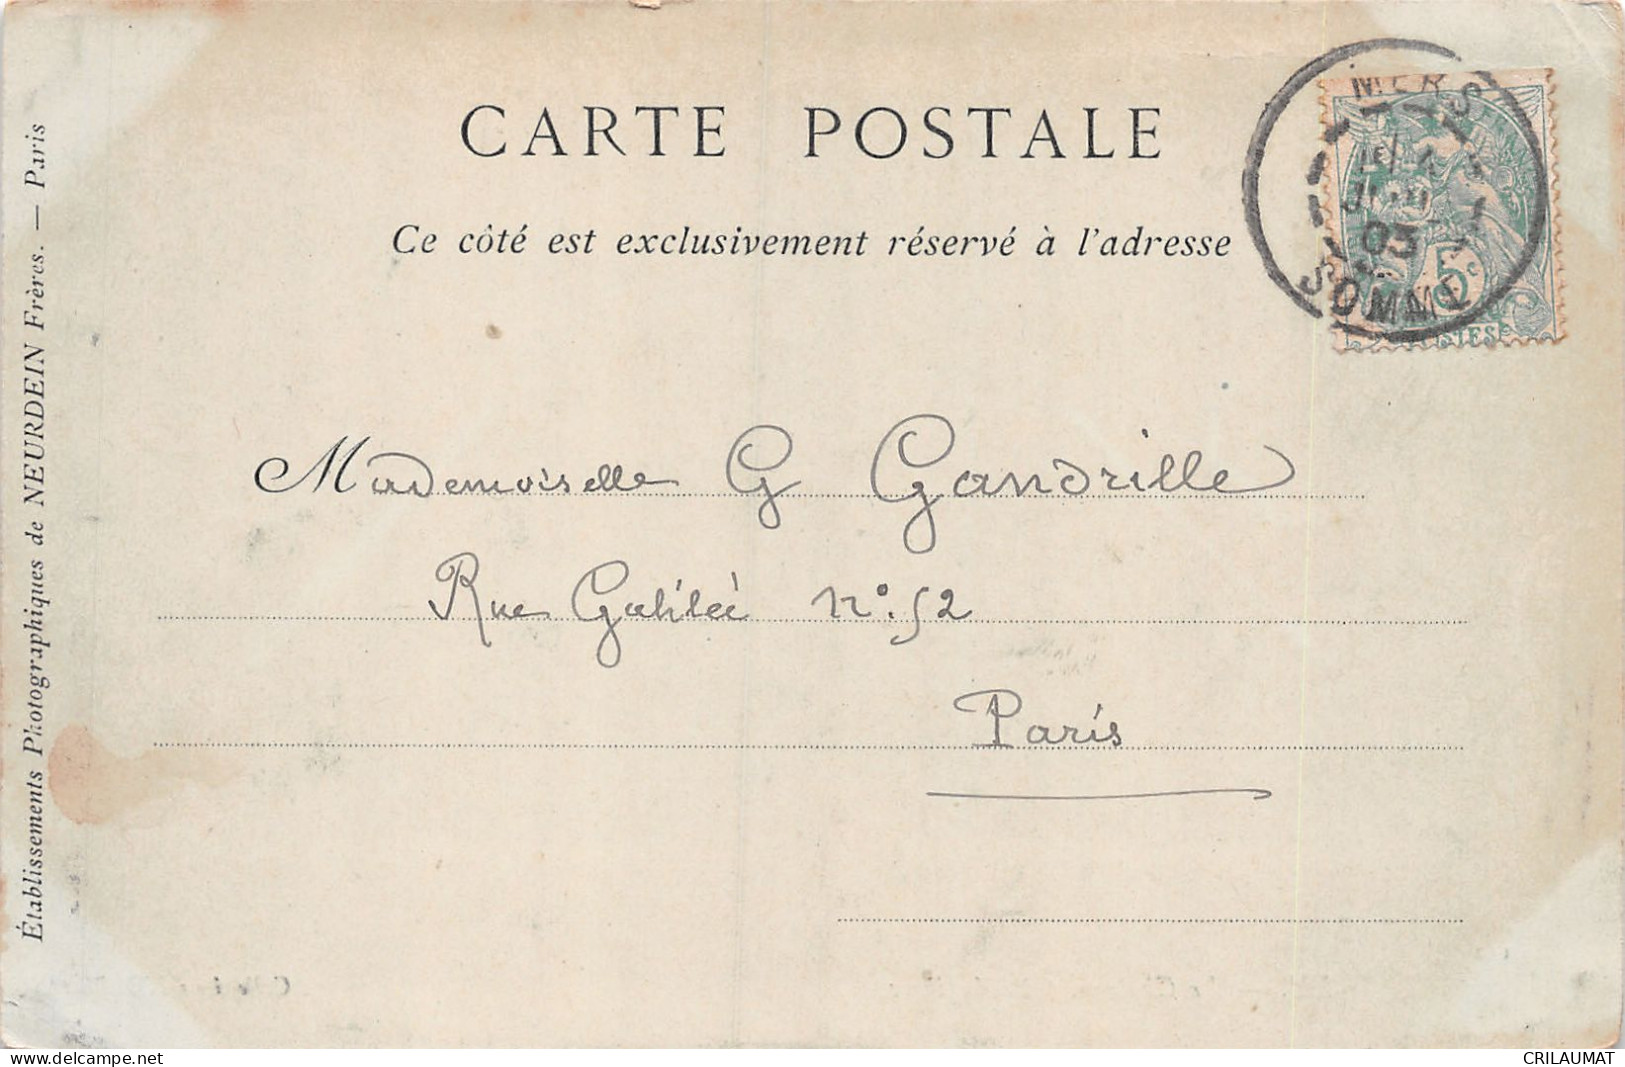 CARTE POSTALE
Ce côté est exclusivement réservé à l'adresse
MERS
03
SOMME
5c
Mademoiselle G Gandrille
Rue Galilée n°. 52
Paris
Établissements Photographiques de NEURDEIN Frères. — Paris
www.delcampe.net
CRILAUMAT